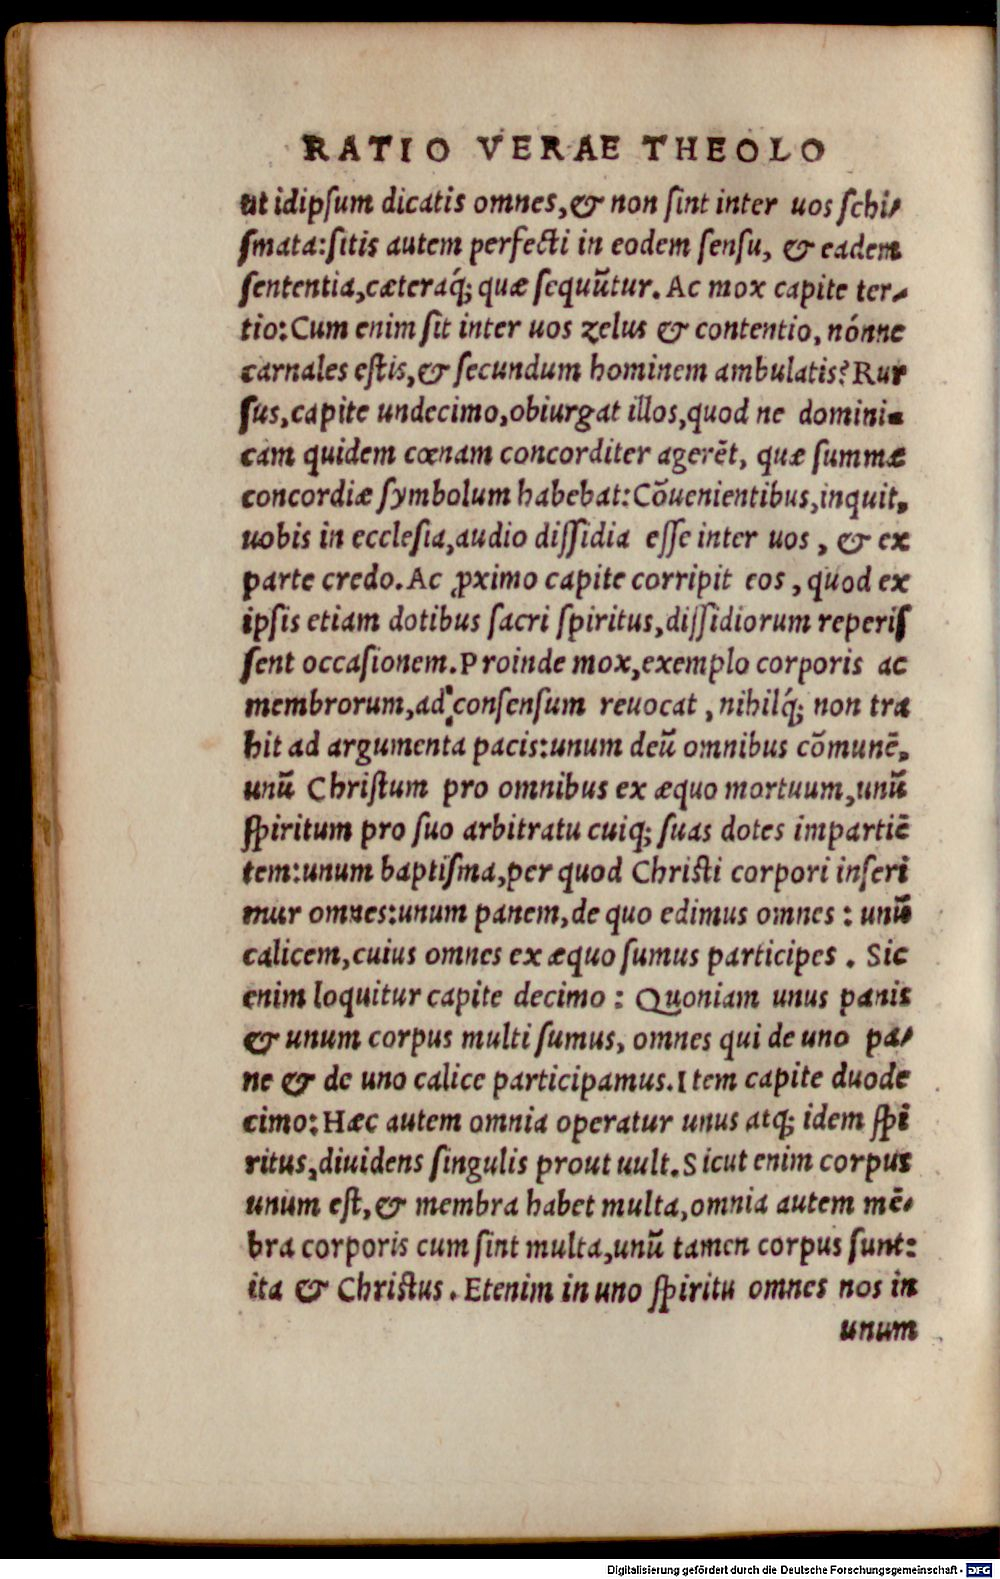 RATIO VERAE THEOLO
ut idipſum dicatis omnes, & non ſint inter uos ſchi-
ſmata: ſitis autem perfecti in eodem ſenſu, & eadem
ſententia, cæteraq́; quæ ſequũtur. Ac mox capite ter-
tio: Cum enim ſit inter uos zelus & contentio, nónne
carnales eſtis, & ſecundum hominem ambulatis? Rur
ſus, capite undecimo, obiurgat illos, quod ne domini-
cam quidem cœnam concorditer agerẽt, quæ ſummæ
concordiæ ſymbolum habebat: Cõuenientibus, inquit,
uobis in eccleſia, audio diſſidia eſſe inter uos, & ex
parte credo. Ac ꝓximo capite corripit eos, quod ex
ipſis etiam dotibus ſacri ſpiritus, diſſidiorum reperiſ
ſent occaſionem. Proinde mox, exemplo corporis ac
membrorum, ad conſenſum reuocat, nihilq́; non tra
hit ad argumenta pacis: unum deũ omnibus cõmunẽ,
unũ Chriſtum pro omnibus ex æquo mortuum, unũ
ſpiritum pro ſuo arbitratu cuiq; ſuas dotes impartiẽ
tem: unum baptiſma, per quod Chriſti corpori inſeri
mur omnes: unum panem, de quo edimus omnes: unũ
calicem, cuius omnes ex æquo ſumus participes. Sic
enim loquitur capite decimo: Quoniam unus panis
& unum corpus multi ſumus, omnes qui de uno pa-
ne & de uno calice participamus. Item capite duode
cimo: Hæc autem omnia operatur unus atq; idem ſpi
ritus, diuidens ſingulis prout uult. Sicut enim corpus
unum eſt, & membra habet multa, omnia autem mẽ-
bra corporis cum ſint multa, unũ tamen corpus ſunt:
ita & Chriſtus. Etenim in uno ſpiritu omnes nos in
unum
Digitalisierung gefördert durch die Deutsche Forschungsgemeinschaft - DFG